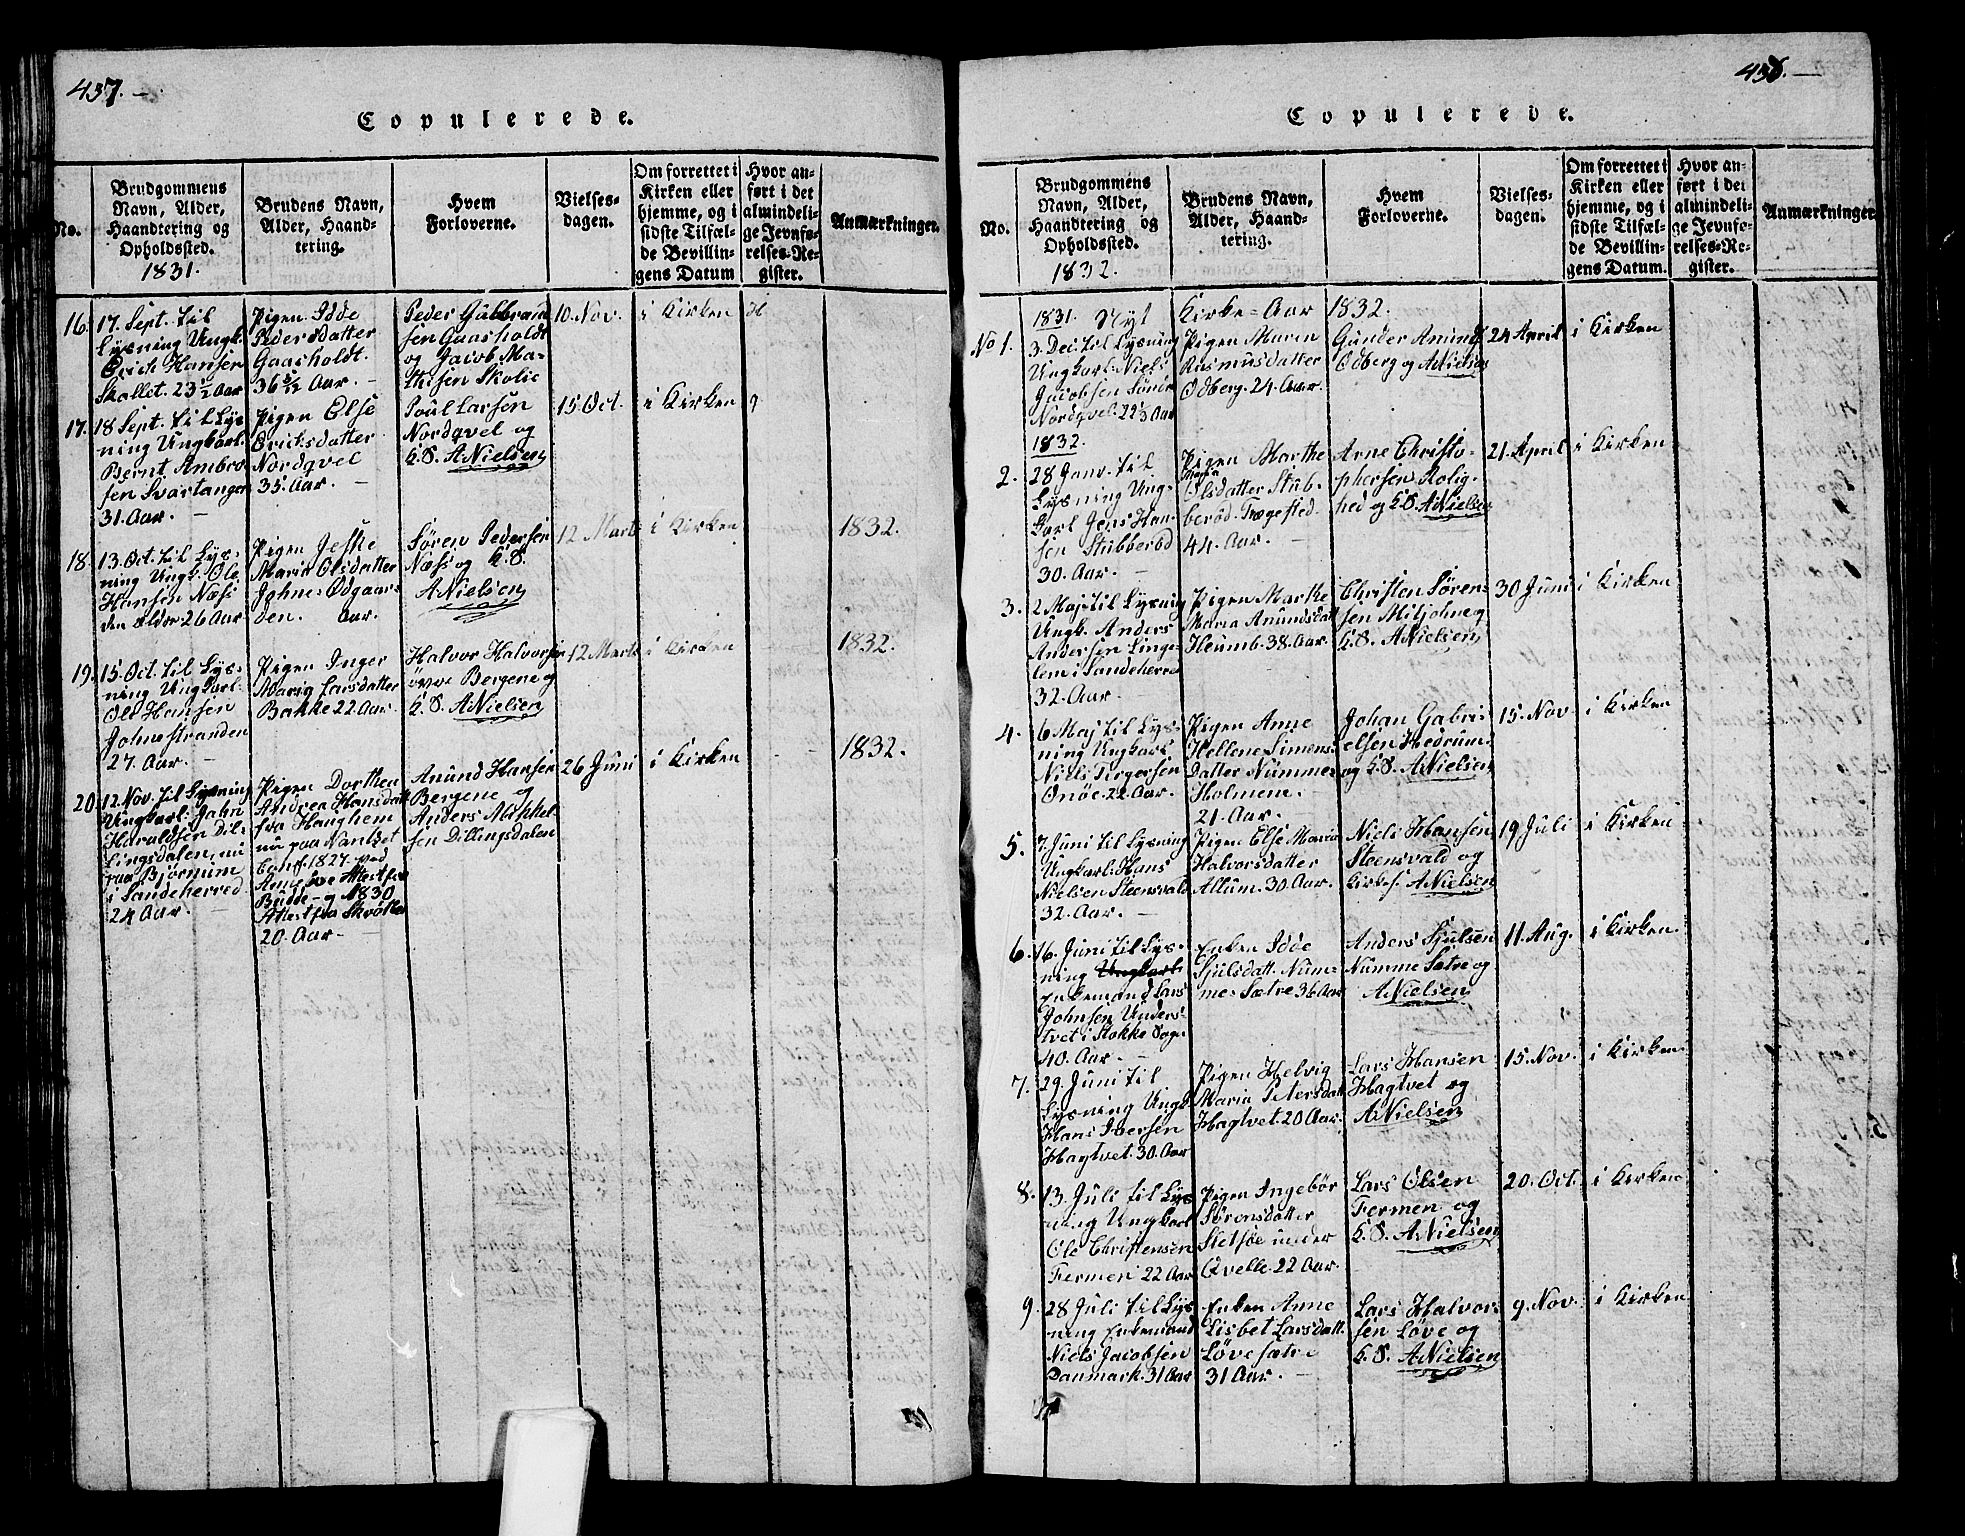 437.
Copulerede.
No.
Brudgommens Navn, Alder, Haandtering og Opholdssted.
1831.
Brudens Navn, Alder, Haandtering.
Hvem Forloverne.
Vielsesdagen.
Om forrettet i Kirken eller hjemme, og i sidste Tilfælde Bevillingens Datum
Hvor anført i det almindelige Jevnførelses-Register.
Anmærkninger.
16.
17. Sept. til
Lysning Ungk.
Erich Hansen
Skallet. 23 1/2 Aar
Pigen Idde
Pedersdatter
Gaasholdt.
Aar.
Peder Gulbrand
sen Gaasholdt
og Jacob Ma-
thisen Skolie
10. Nov.
i Kirken
17.
18 Sept. til Lys
ning Ungkarl.
Bernt Ambro
sen Svartangen
31. Aar.
Pigen Else
Ericksdatter
Nordqvel
35. Aar.
Poul Larsen
Nordqvel og
K.S. ANielsen
15. Oct.
i Kirken
18.
13. Oct. til Lys-
ning Ungk. Ole
Hansen Næss
den Ældre 26 Aar
Pigen
Maria Olsdatter
Johnes Odgaar-
den. Aar.
Søren Pedersen
Næss og K.S.
ANielsen
12 Marts
i Kirken
1832.
19.
15. Oct. til Lys-
ning Ungkarl.
Ole Hansen
Johnsstranden
27. Aar.
Pigen Inger
Maria Larsdatter
Bakke 22 Aar.
Halvor Halvorsen
Bergene og
K.S. ANielsen
12 Marts
i Kirken
1832.
20.
12. Nov. til Lysning
Ungkarl. John
Haraldsen Dil-
lingsdalen, nu
paa Bjørnum
i Sandeherred
24 Aar.
Pigen Dorthea
Andrea Hansdatt
fra Haughem
nu paa Nantset
Conf. 1827 ved
Arnesøe Attest fra
Budde - og 1830
Attest fra
20. Aar
Anund Hansen
Bergene og
Anders Mikkel
sen Dillingsdalen
26 Juni
i Kirken
1832.
438.
Copulerede.
No.
Brudgommens Navn, Alder, Haandtering og Opholdssted.
1832.
Brudens Navn, Alder, Haandtering.
Hvem Forloverne.
Vielsesdagen.
Om forrettet i Kirken eller hjemme, og i sidste Tilfælde Bevillingens Datum.
Hvor anført i det almindelige Jevnførelses-Register.
Anmærkninger
1831. Nyt Kirke-Aar 1832.
No 1.
3. Dec. til Lysning
Ungkarl Niels
Jacobsen Søndre
Nordqvel. Aar
Pigen Maren
Rasmusdatter
Odberg. 24. Aar.
Gunder Amund
Odberg og ANielsen
24 April
i Kirken
1832.
2.
28 Janv. til
Lysning Ung-
karl Jens Han-
sen Stubberød
30. Aar.
Pigen Marthe
Maria
Olsdatter Stub-
berød. Trægested
44. Aar.
Arne Christo-
phersen Rolig-
hed og K.S. ANielsen
21. April
i Kirken
3.
2 Maj til Lysning
Ungk. Anders
Andersen Linge-
lem i Sandeherred
32. Aar.
Pigen Marthe
Maria Anundsdatt
Heumb. 38. Aar.
Christen Søren-
sen Miljohne og
K.S. ANielsen
30 Juni
i Kirken
4.
6 Maj til Lys-
ning Ungkarl
Niels Torgersen
Onöe. 22 Aar.
Pigen Anne
Hellene Simens
datter Nummes
Holmem.
21. Aar.
Johan Gabri-
elsen Hedrum.
og K.S. ANielsen
15. Nov.
i Kirken
5.
7. Juni til Lysning
Ungkarl: Hans
Nielsen Steensvald
32. Aar.
Pigen Else Maria
Halvorsdatter
Allum. 30. Aar.
Niels Hansen
Steensvald og
Kirkes. ANielsen
19 Juli
i Kirken
6.
16. Juni til Lys-
ning Ungkarl.
Enkemand Lars
Johnsen Unders-
tvet i Stokke Sogn
40. Aar.
Enken Idde
Sjulsdatt. Num-
me-Sætre 36 Aar
Anders Sjulsen
Numme Sætre og
ANielsen
11. Aug.
i Kirken.
7.
29. Juni til
Lysning Ungk
Hans Iversen
Hagtvet. 30. Aar
Pigen Helvig
Maria Petersdatt
Hagtvet. 20 Aar.
Lars Hansen
Hagtvet og
ANielsen
15. Nov.
i Kirken.
8.
13. Juli til Lys
ning Ungkarl
Ole Christensen
Fermen 22 Aar
Pigen Ingebör
Sørensdatter
Sletsøe under
Qvelle. 22 Aar.
Lars Olsen
Fermen og
K.S. ANielsen
20. Oct.
i Kirken
9.
28 Juli til Lys
ning Enkemand
Niels Jacobsen
Danmark. 31 Aar
Enken Anne
Lisbet Larsdatt.
Løvesætre
31 Aar.
Lars Halvor
sen Løve og
K.S. ANielsen
9. Nov.
i Kirken